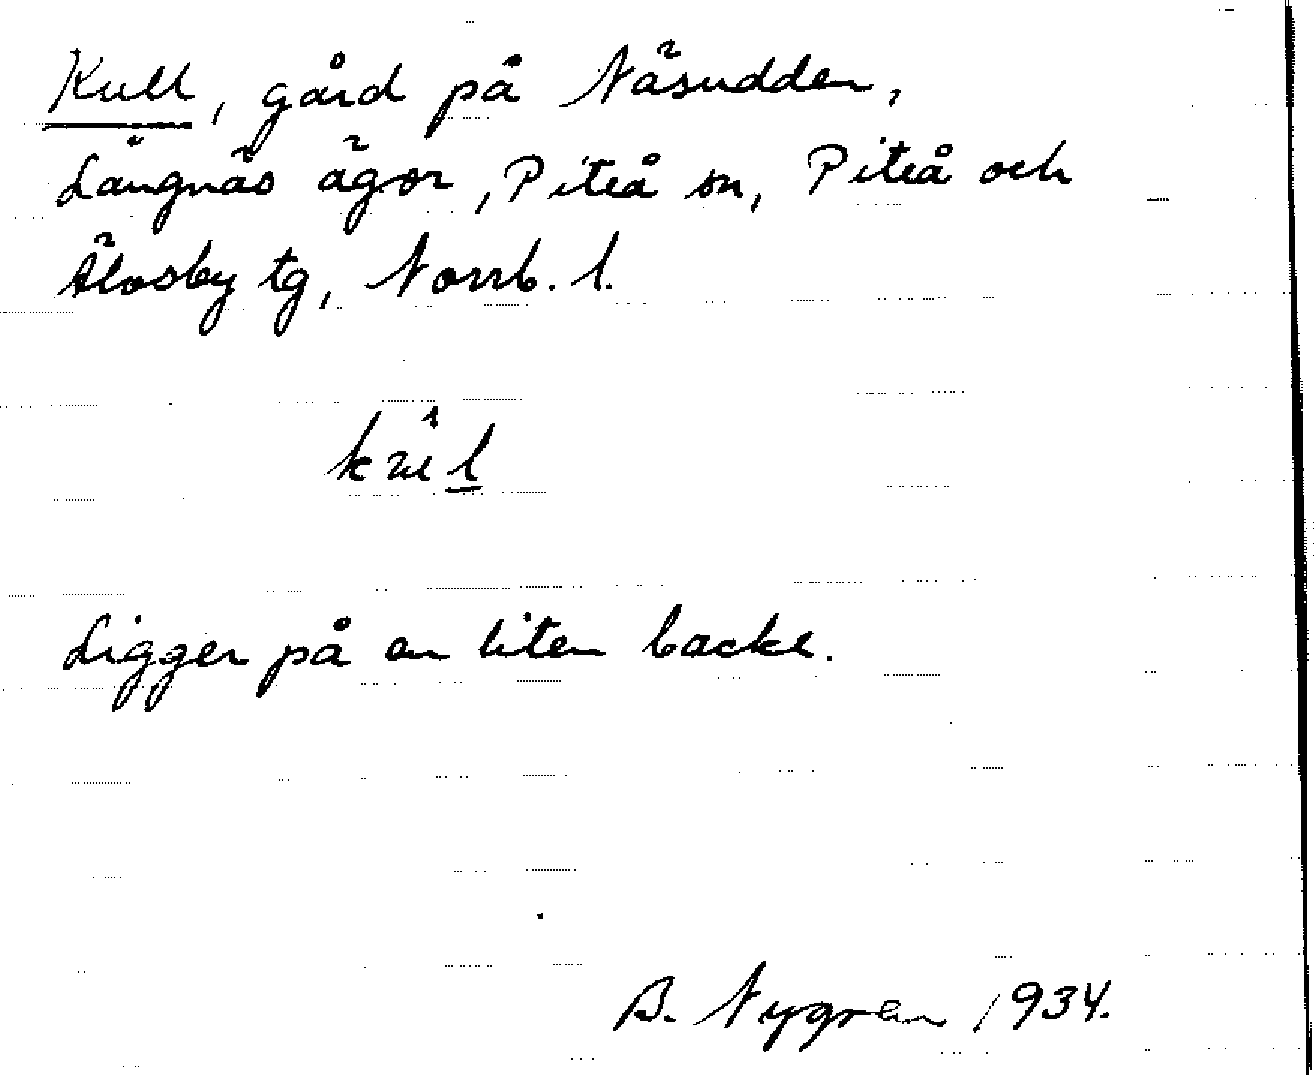 Kull, gård på Näsudden,
Långnäs ägor, Piteå sn, Piteå och
Älvsby tg, Norrb. l.
Ligger på en liten backe.
B. Nygren 1934.